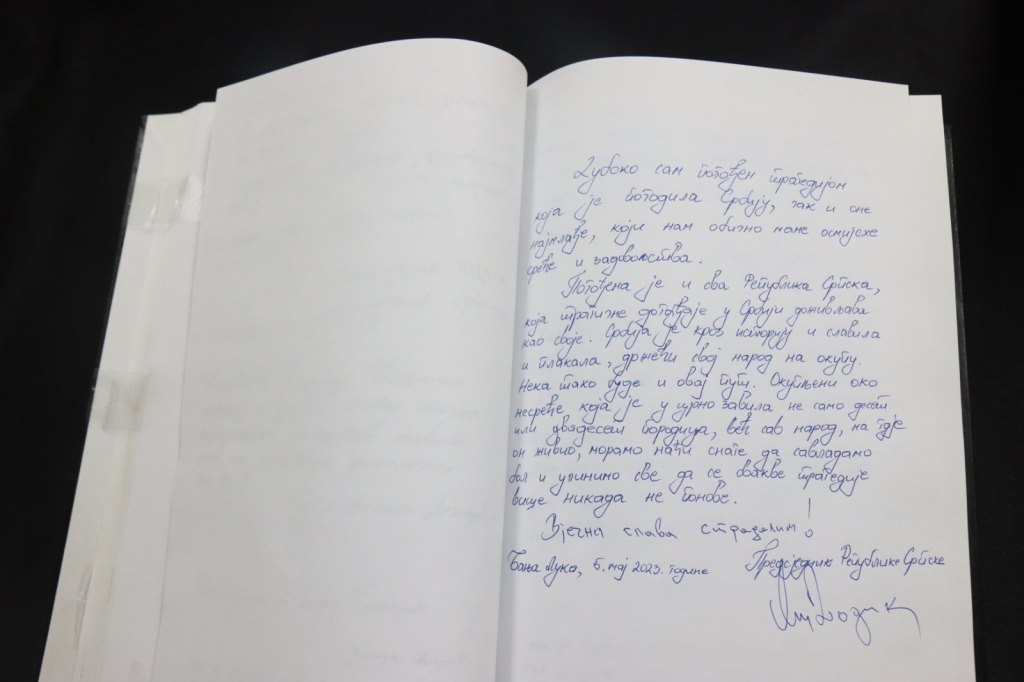 Дубоко сам погођен трагедијом
која је погодила Србију, так и оне
најмлађе, који нам обично маме осмијехе
среће и задовољства.
Погођена је и сва Република Српска,
која трагичне догађаје у Србији доживљава
као своје. Србија је кроз историју и славила
и плакала, држећи свој народ на окупу.
Нека тако буде и овај пут. Окупљени око
несреће која је у црно завила не само десет
или двадесет породица, већ сав народ, ма гдје
он живио, морамо наћи снаге да савладамо
бол и учинимо све да се овакве трагедије
више никада не понове.
Вјечна слава страдалим!
Бања Лука, 5. мај 2023. године
Предсједник Републике Српске